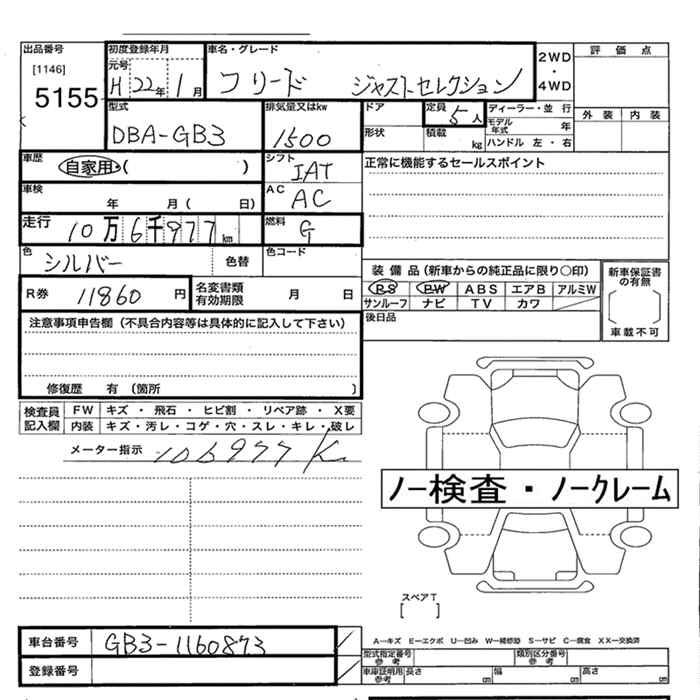 出品番号 初度登録年月 車名・グレード 2WD・4WD 評価点
[1146] 元号
5155 H 22年 1月 フリード ジャストセレクション
型式 排気量又はkw ドア 定員 ディーラー・並行 外装 内装
DBA-GB3 1500 5人 モデル年式 年
形状 積載 kg ハンドル 左・右
車歴 自家用・( ) シフト IAT 正常に機能するセールスポイント
車検 年 月( 日) AC AC
走行 10万6千977km 燃料 G
色 シルバー 色替 色コード
装備品(新車からの純正品に限り○印) 新車保証書の有無
R券 11860円 名変書類有効期限 月 日 PS PW ABS エアB アルミW
サンルーフ ナビ TV カワ
注意事項申告欄(不具合内容等は具体的に記入して下さい) 後日品 車載不可
修復歴 有(箇所 )
検査員記入欄 FW キズ・飛石・ヒビ割・リペア跡・X要
内装 キズ・汚レ・コゲ・穴・スレ・キレ・破レ
メーター指示 106977K
ノー検査・ノークレーム
スペアT
[ ]
車台番号 GB3-1160873 A―キズ E―エクボ U―凹み W―補修跡 S―サビ C―腐食 XX―交換済
型式指定番号 参考 類別区分番号 参考
登録番号 車庫証明用参考 長さ cm 幅 cm 高さ cm